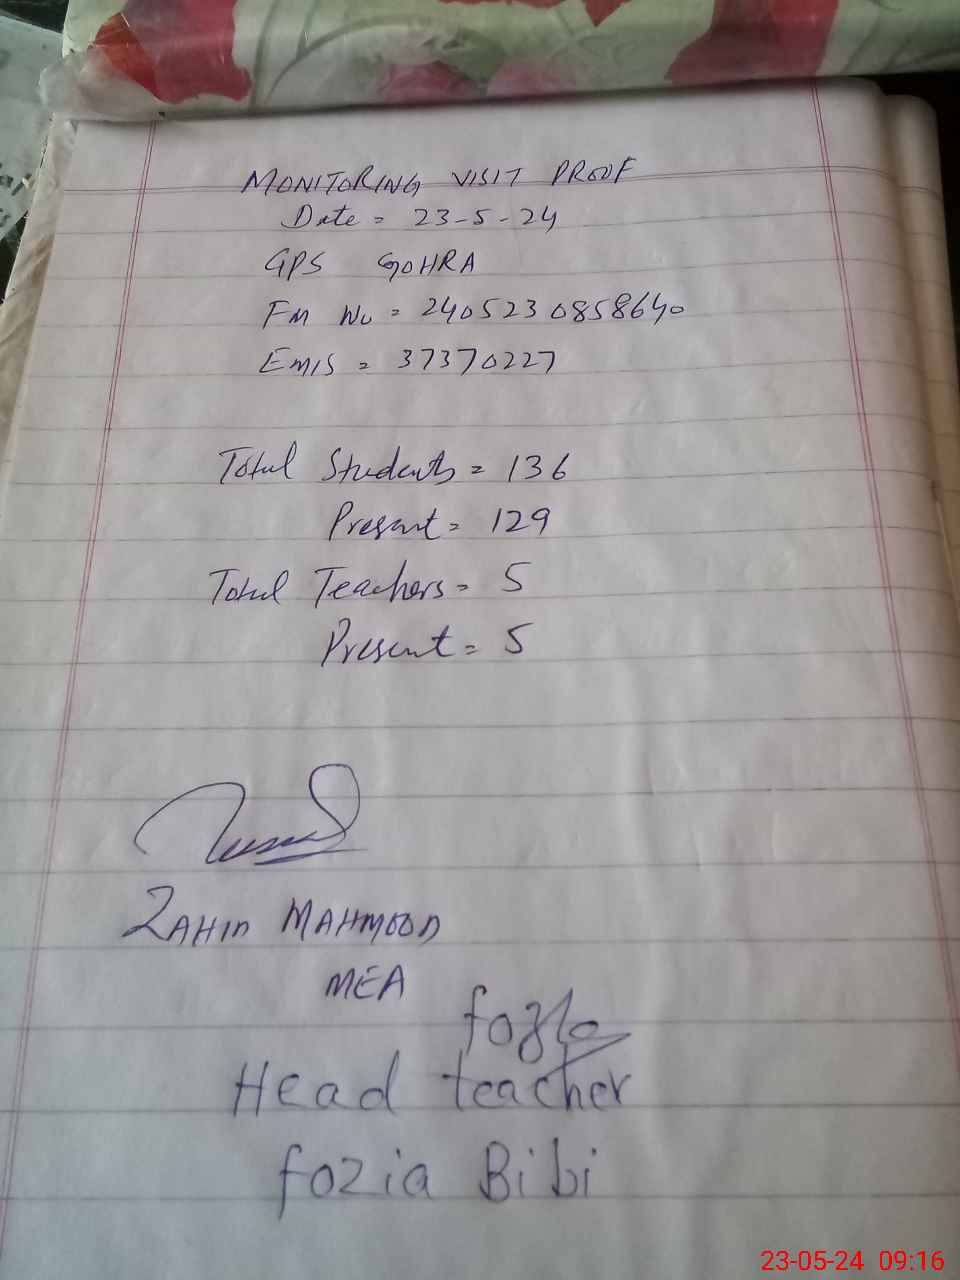 MONITORING VISIT PROOF
Date = 23-5-24
GPS GOHRA
Fm No = 2405230858640
Emis = 37370227
Total Students = 136
Present = 129
Total Teachers = 5
Present = 5
ZAHID MAHMOOD
MEA
Head teacher
fozia Bibi
23-05-24 09:16